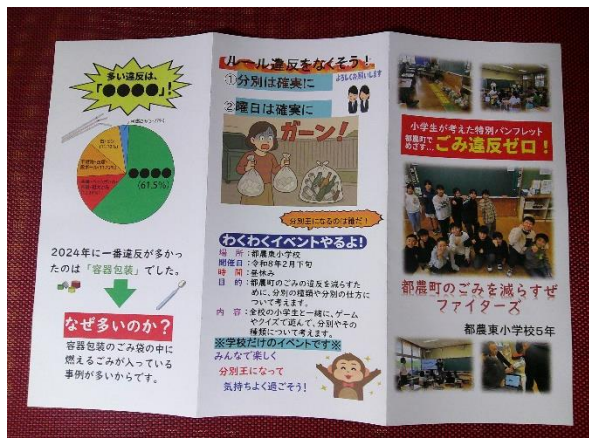 多い違反は、
「●●●●」!
●●●●
(61.5%)
2024年に一番違反が多かっ
たのは「容器包装」でした。
なぜ多いのか?
容器包装のごみ袋の中に
燃えるごみが入っている
事例が多いからです。
ルール違反をなくそう!
①分別は確実に
よろしくお願いします
②曜日は確実に
ガーン!
分別王になるのは誰だ!
わくわくイベントやるよ!
場 所:都農東小学校
開催日:令和8年2月下旬
時 間:昼休み
目 的:都農町のごみの違反を減らすた
めに、分別の種類や分別の仕方に
ついて考えます。
内 容:全校の小学生と一緒に、ゲーム
やクイズで遊んで、分別やその
種類について考えます。
※学校だけのイベントです※
みんなで楽しく
分別王になって
気持ちよく過ごそう!
小学生が考えた特別パンフレット
都農町で
めざす…ごみ違反ゼロ!
都農町のごみを減らすぜ
ファイターズ
都農東小学校5年